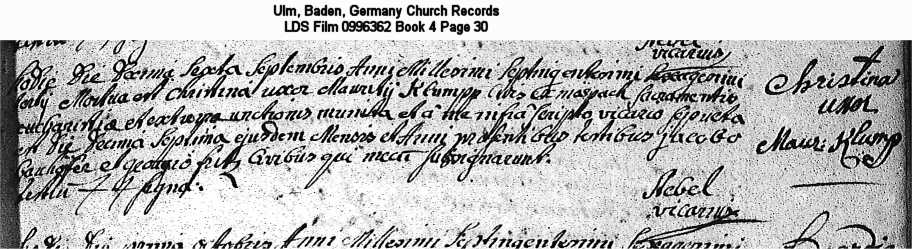 Ulm, Baden, Germany Church Records
LDS Film 0996362 Book 4 Page 30
Nebel
vicarius
Hodie Die Decima Sexta Septembris Anni Millesimi Septingentesimi
Mortua est Christina uxor Maurity Klumpp civis Sacramentis
et extrema unctionis munita et à me infra scripto vicario sepulta
est die decima septima ejusdem Mensis et Anni praesentibus testibus jacobo
et georgio fritz Civibus qui mecum subsignarunt.
signa:
Christina
uxor
Maur: Klump
Nebel
vicarius
octobris Anni Millesimi Septingentesimi